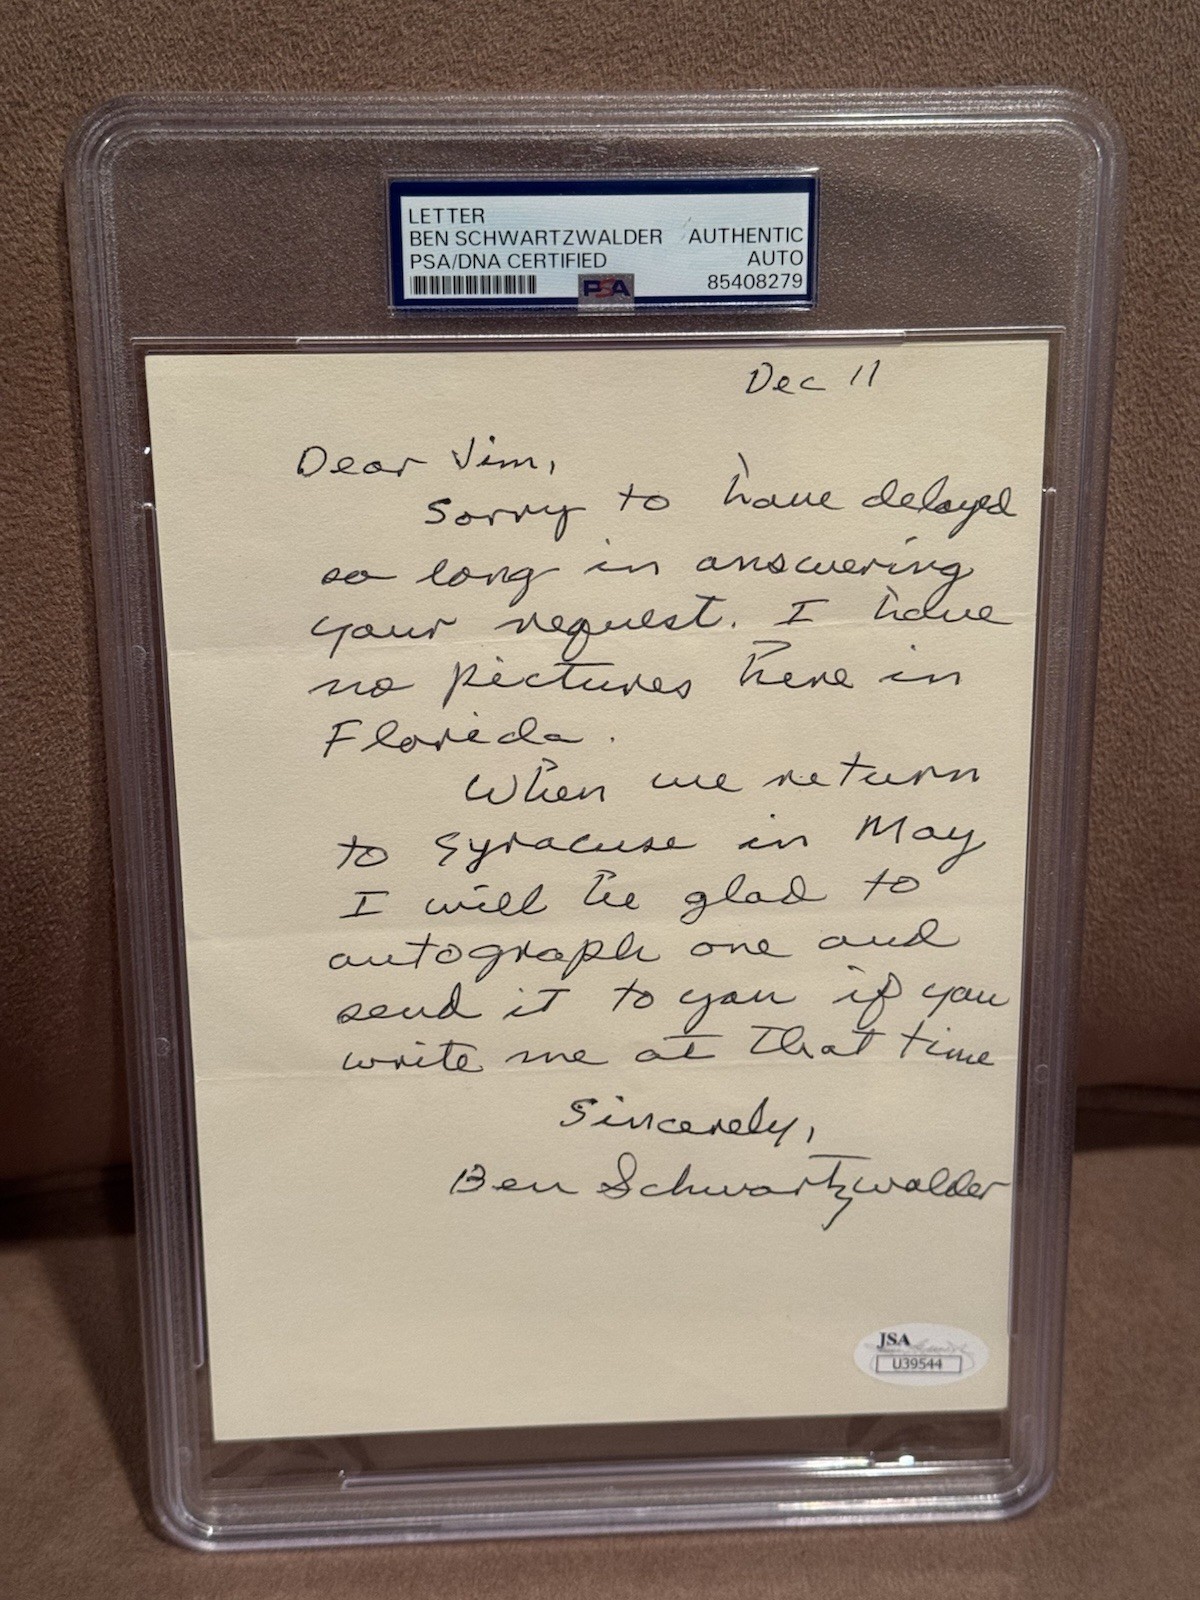 LETTER
BEN SCHWARTZWALDER AUTHENTIC
PSA/DNA CERTIFIED AUTO
PSA 85408279
Dec 11
Dear Jim,
Sorry to have delayed
so long in answering
your request. I have
no pictures here in
Florida.
When we return
to Syracuse in May
I will be glad to
autograph one and
send it to you if you
write me at that time
Sincerely,
Ben Schwartzwalder
JSA
U39544